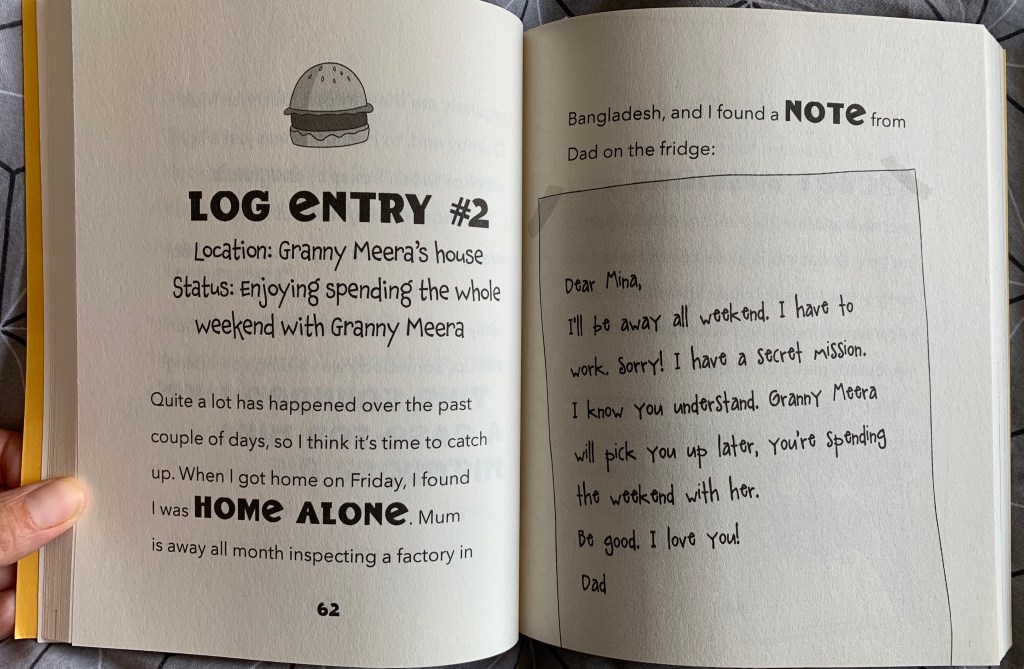 LOG ENTRY #2
Location: Granny Meera's house
Status: Enjoying spending the whole
weekend with Granny Meera
Quite a lot has happened over the past
couple of days, so I think it's time to catch
up. When I got home on Friday, I found
I was HOME ALONE. Mum
is away all month inspecting a factory in
62
Bangladesh, and I found a NOTE from
Dad on the fridge:
Dear Mina,
I'll be away all weekend. I have to
work. Sorry! I have a secret mission.
I know you understand. Granny Meera
will pick you up later, you're spending
the weekend with her.
Be good. I love you!
Dad